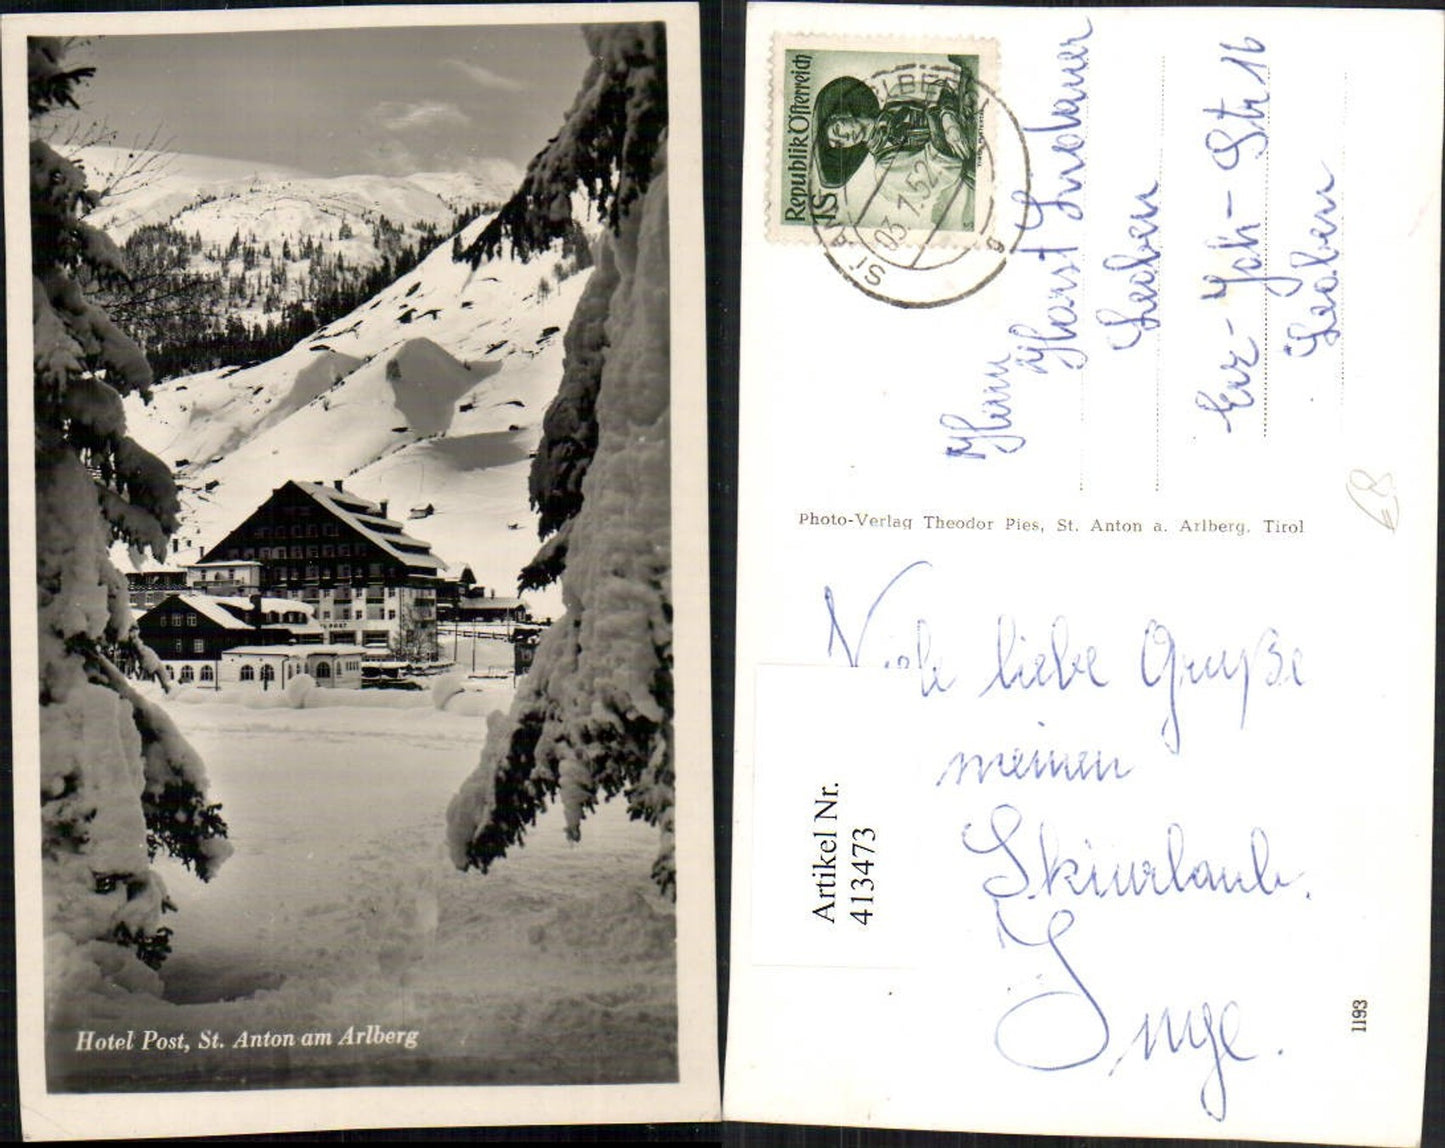 Hotel Post, St. Anton am Arlberg
Republik Österreich
1S
03.1.52
Herrn
Horst Indauer
Leoben
Erz-Joh-Str 16
Leoben
Photo-Verlag Theodor Pies, St. Anton a. Arlberg, Tirol
Viele liebe Grüße
meinen
Skiurlaub.
Inge.
Artikel Nr.
413473
1193